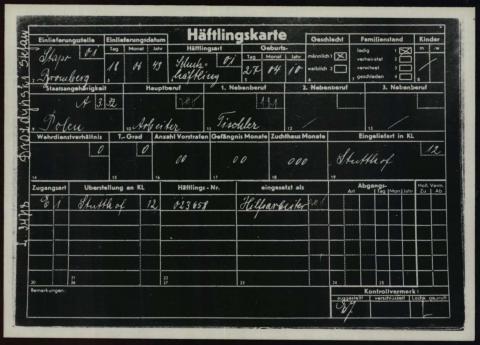 Häftlingskarte
Einlieferungsstelle Einlieferungsdatum Häftlingsart Geburts- Geschlecht Familienstand Kinder
Tag Monat Jahr Tag Monat Jahr männlich ledig m w
Stapo 01 18 06 43 Schutz- 01 27 04 10 weiblich verheiratet
Bromberg häftling verwitwet
geschieden
Staatsangehörigkeit Hauptberuf 1. Nebenberuf 2. Nebenberuf 3. Nebenberuf
A 3.32 191
Polen Arbeiter Tischler
Wehrdienstverhältnis T.-Grad Anzahl Vorstrafen Gefängnis Monate Zuchthaus Monate Eingeliefert in KL
0 0 00 00 000 Stutthof 12
Zugangsart Überstellung an KL Häftlings-Nr. eingesetzt als Abgangs- Holl. Verm.
Art Tag Mon. Jahr Zu Ab
E 1 Stutthof 12 023658 Hilfsarbeiter
Bemerkungen: Kontrollvermerk:
ausgestellt verschlüsselt Loch. geprüft